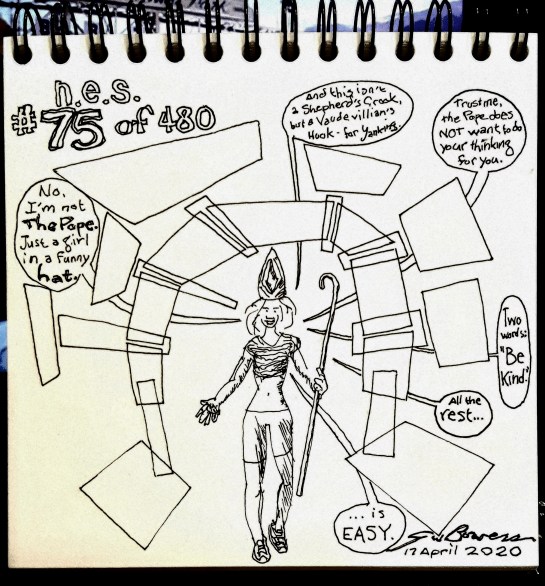 n.e.s.
#75 of 480
No,
I'm not
The Pope.
Just a girl
in a funny
hat.
And this isn't
a Shepherd's Crook,
but a Vaudevillian's
Hook - for Yanking.
Trust me,
the Pope does
NOT want to do
your thinking
for you.
Two
words:
"Be
Kind."
All the
rest...
...is
EASY.
17 April 2020